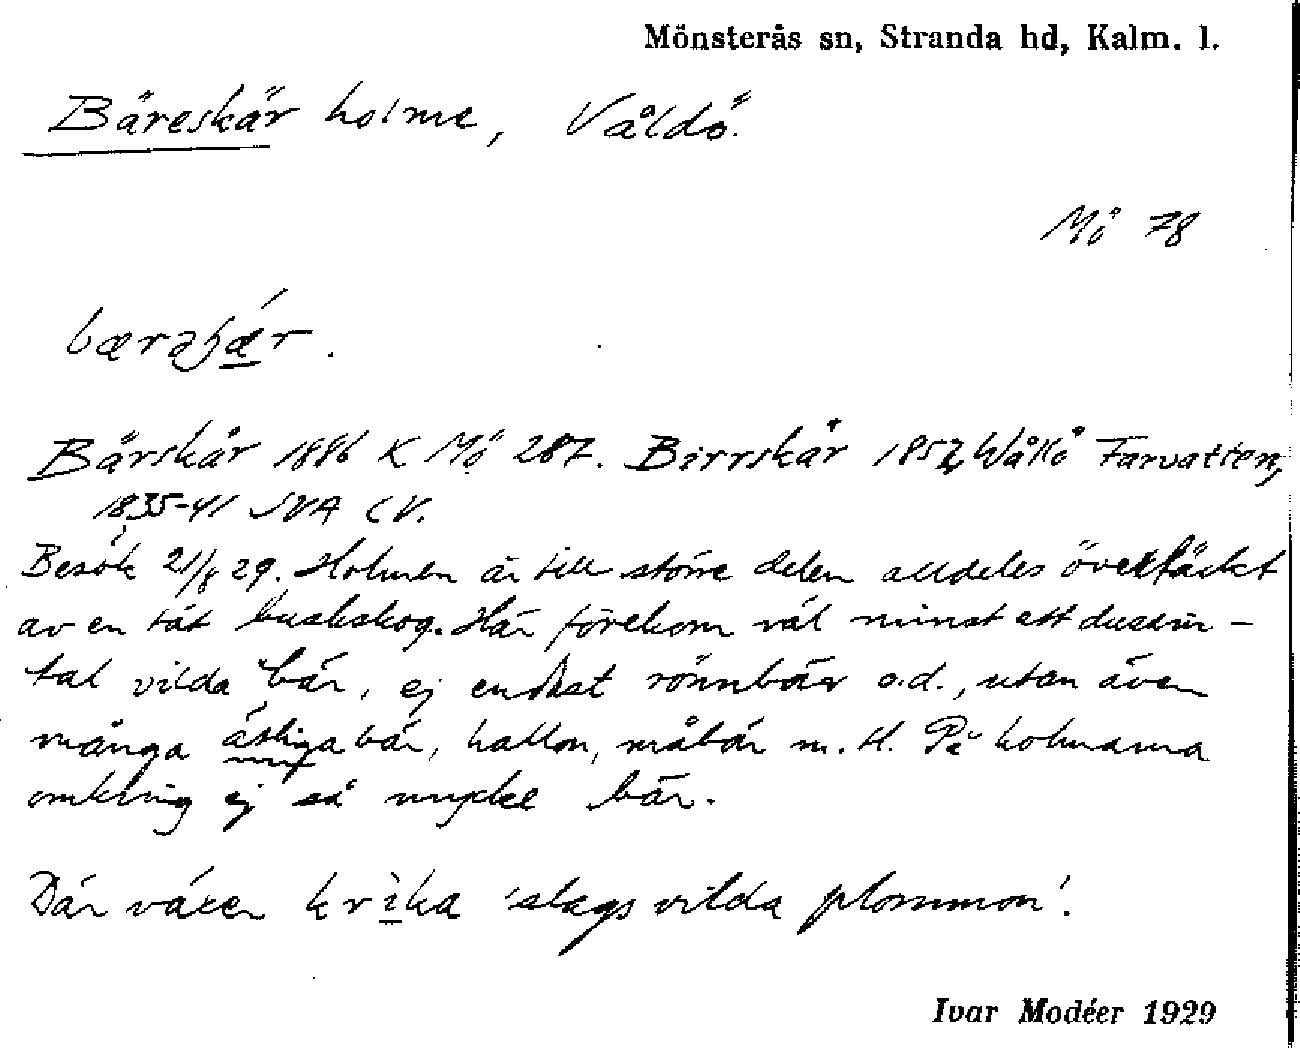 Mönsterås sn, Stranda hd, Kalm. l.
Bäreskär holme, Våldö.
Mö 78
Bärskär 1886 K Mö 287. Birrskär 1857, Farvatten,
1835-41 SVA CV.
Besök 21/8 29. Holmen är till större delen alldeles övertäckt
av en tät buskskog. Här förekom väl minst ett dussin-
tal vilda bär, ej endast rönnbär o.d., utan även
många ätliga bär, hallon, måbär m. fl. På holmarna
omkring ej så mycket bär.
Där växer krika 'slags vilda plommon'.
Ivar Modéer 1929